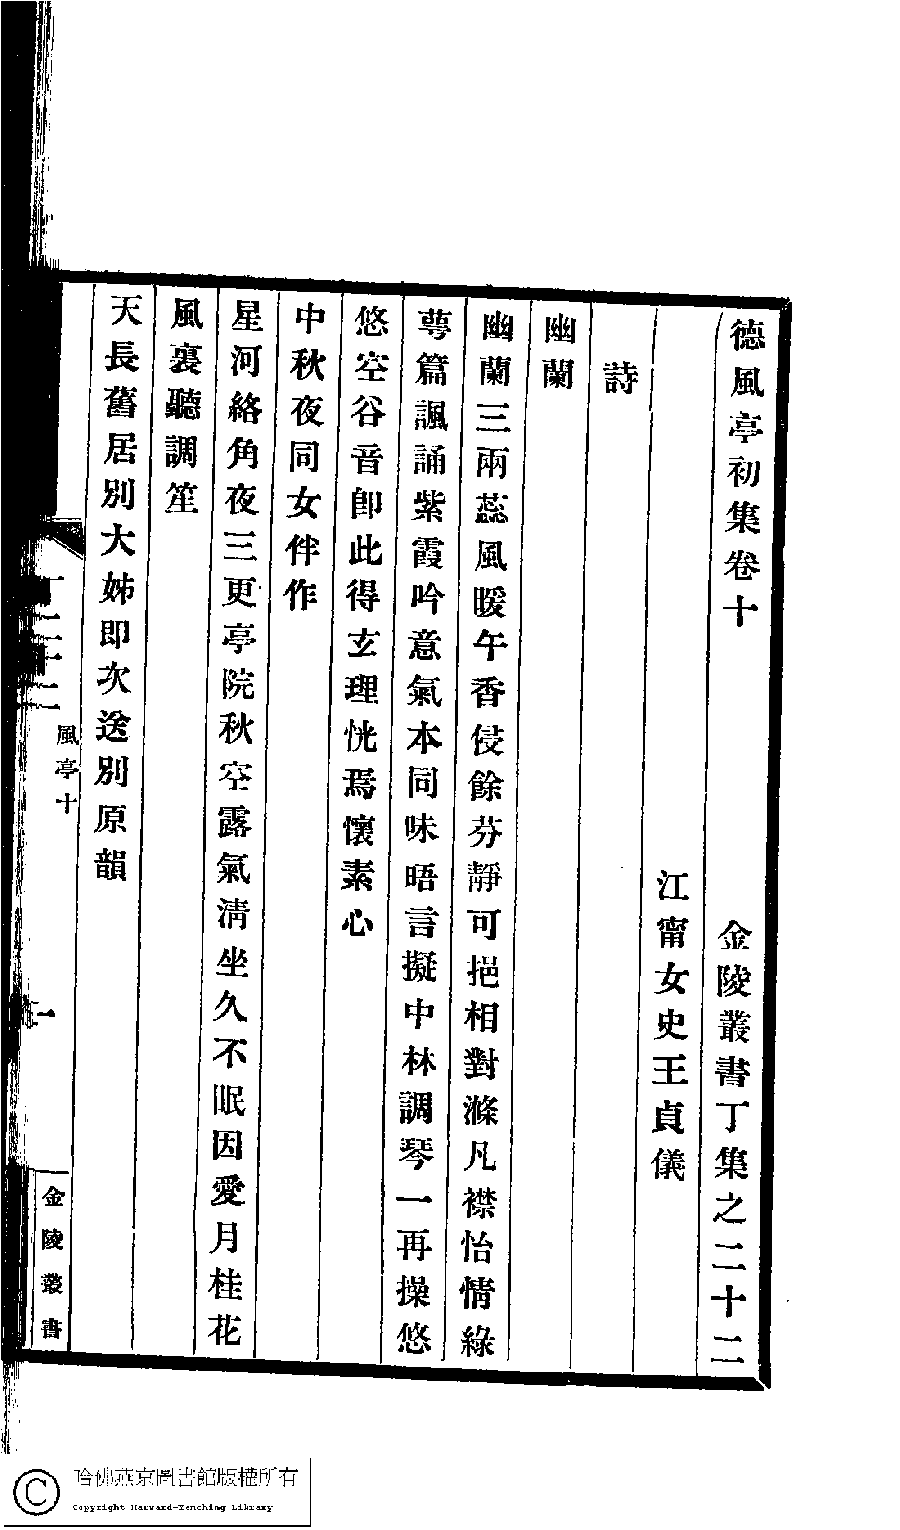 德風亭初集卷十 金陵叢書丁集之二十二
江甯女史王貞儀
詩
幽蘭
幽蘭三兩蕊風暖午香侵餘芬靜可挹相對滌凡襟怡情綠
萼篇諷誦紫霞吟意氣本同味晤言擬中林調琴一再操悠
悠空谷音卽此得玄理恍焉懷素心
中秋夜同女伴作
星河絡角夜三更亭院秋空露氣清坐久不眠因愛月桂花
風裏聽調笙
天長舊居別大姊即次送別原韻
風亭十
一
金陵叢書
哈佛燕京圖書館版權所有
Copyright Harvard-Yenching Library